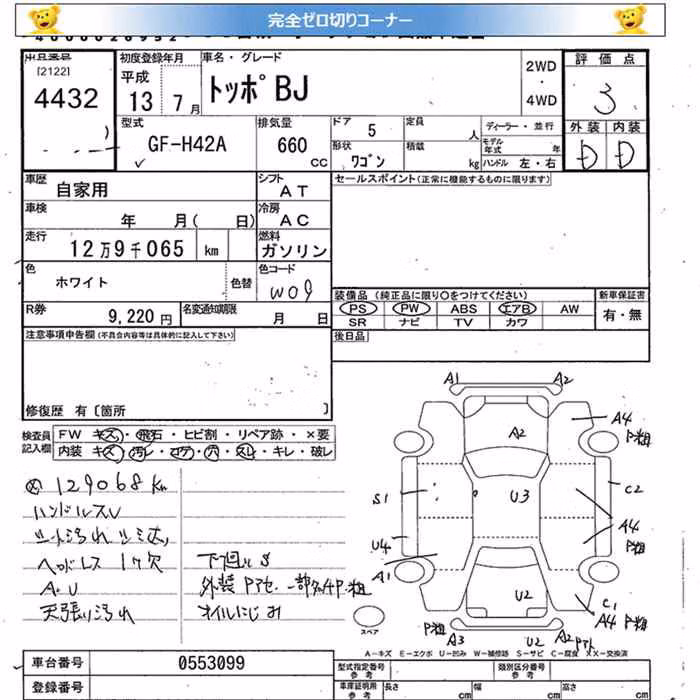 完全ゼロ切りコーナー
出品番号
[2122]
4432
初度登録年月
平成
13 7月
車名・グレード
トッポBJ
2WD
・
4WD
評価点
3
外装 内装
D D
型式
GF-H42A
排気量
660
CC
ドア 5
定員 人
ディーラー・並行
形状
ワゴン
積載 kg
モデル年式 年
ハンドル 左・右
車歴
自家用
シフト
AT
セールスポイント(正常に機能するものに限ります)
車検
年 月( 日)
冷房
AC
走行
12万9千065 km
燃料
ガソリン
色
ホワイト
色替
色コード
W09
装備品 (純正品に限り○をつけてください)
新車保証書
PS PW ABS エアB AW
有・無
SR ナビ TV カワ
R券
9,220円
名変通知期限
月 日
後日品
注意事項申告欄(不具合内容等は具体的に記入して下さい)
修復歴 有〔箇所 〕
検査員記入欄
FW キズ・飛石・ヒビ割・リペア跡・×要
内装 キズ・汚レ・コゲ・穴・スレ・キレ・破レ
129068Km
ハンドルスレ
シート汚れ
ヘッドレス 1ケ欠
A.U
天張り汚れ
下廻りS
外装 Pアセ 一部分4P.粗
オイルにじみ
A1 A2
A2
A4
P粗
S1
U3
C2
U4
A4
P粗
A1
U2
C1
A4 P粗
P粗
A3
U2 A2
スペア
A-キズ E-エクボ U-凹み W-補修跡 S-サビ C-腐食 XX-交換済
車台番号
0553099
登録番号
型式指定番号
参考
類別区分番号
参考
車庫証明用
参考
長さ cm
幅 cm
高さ cm